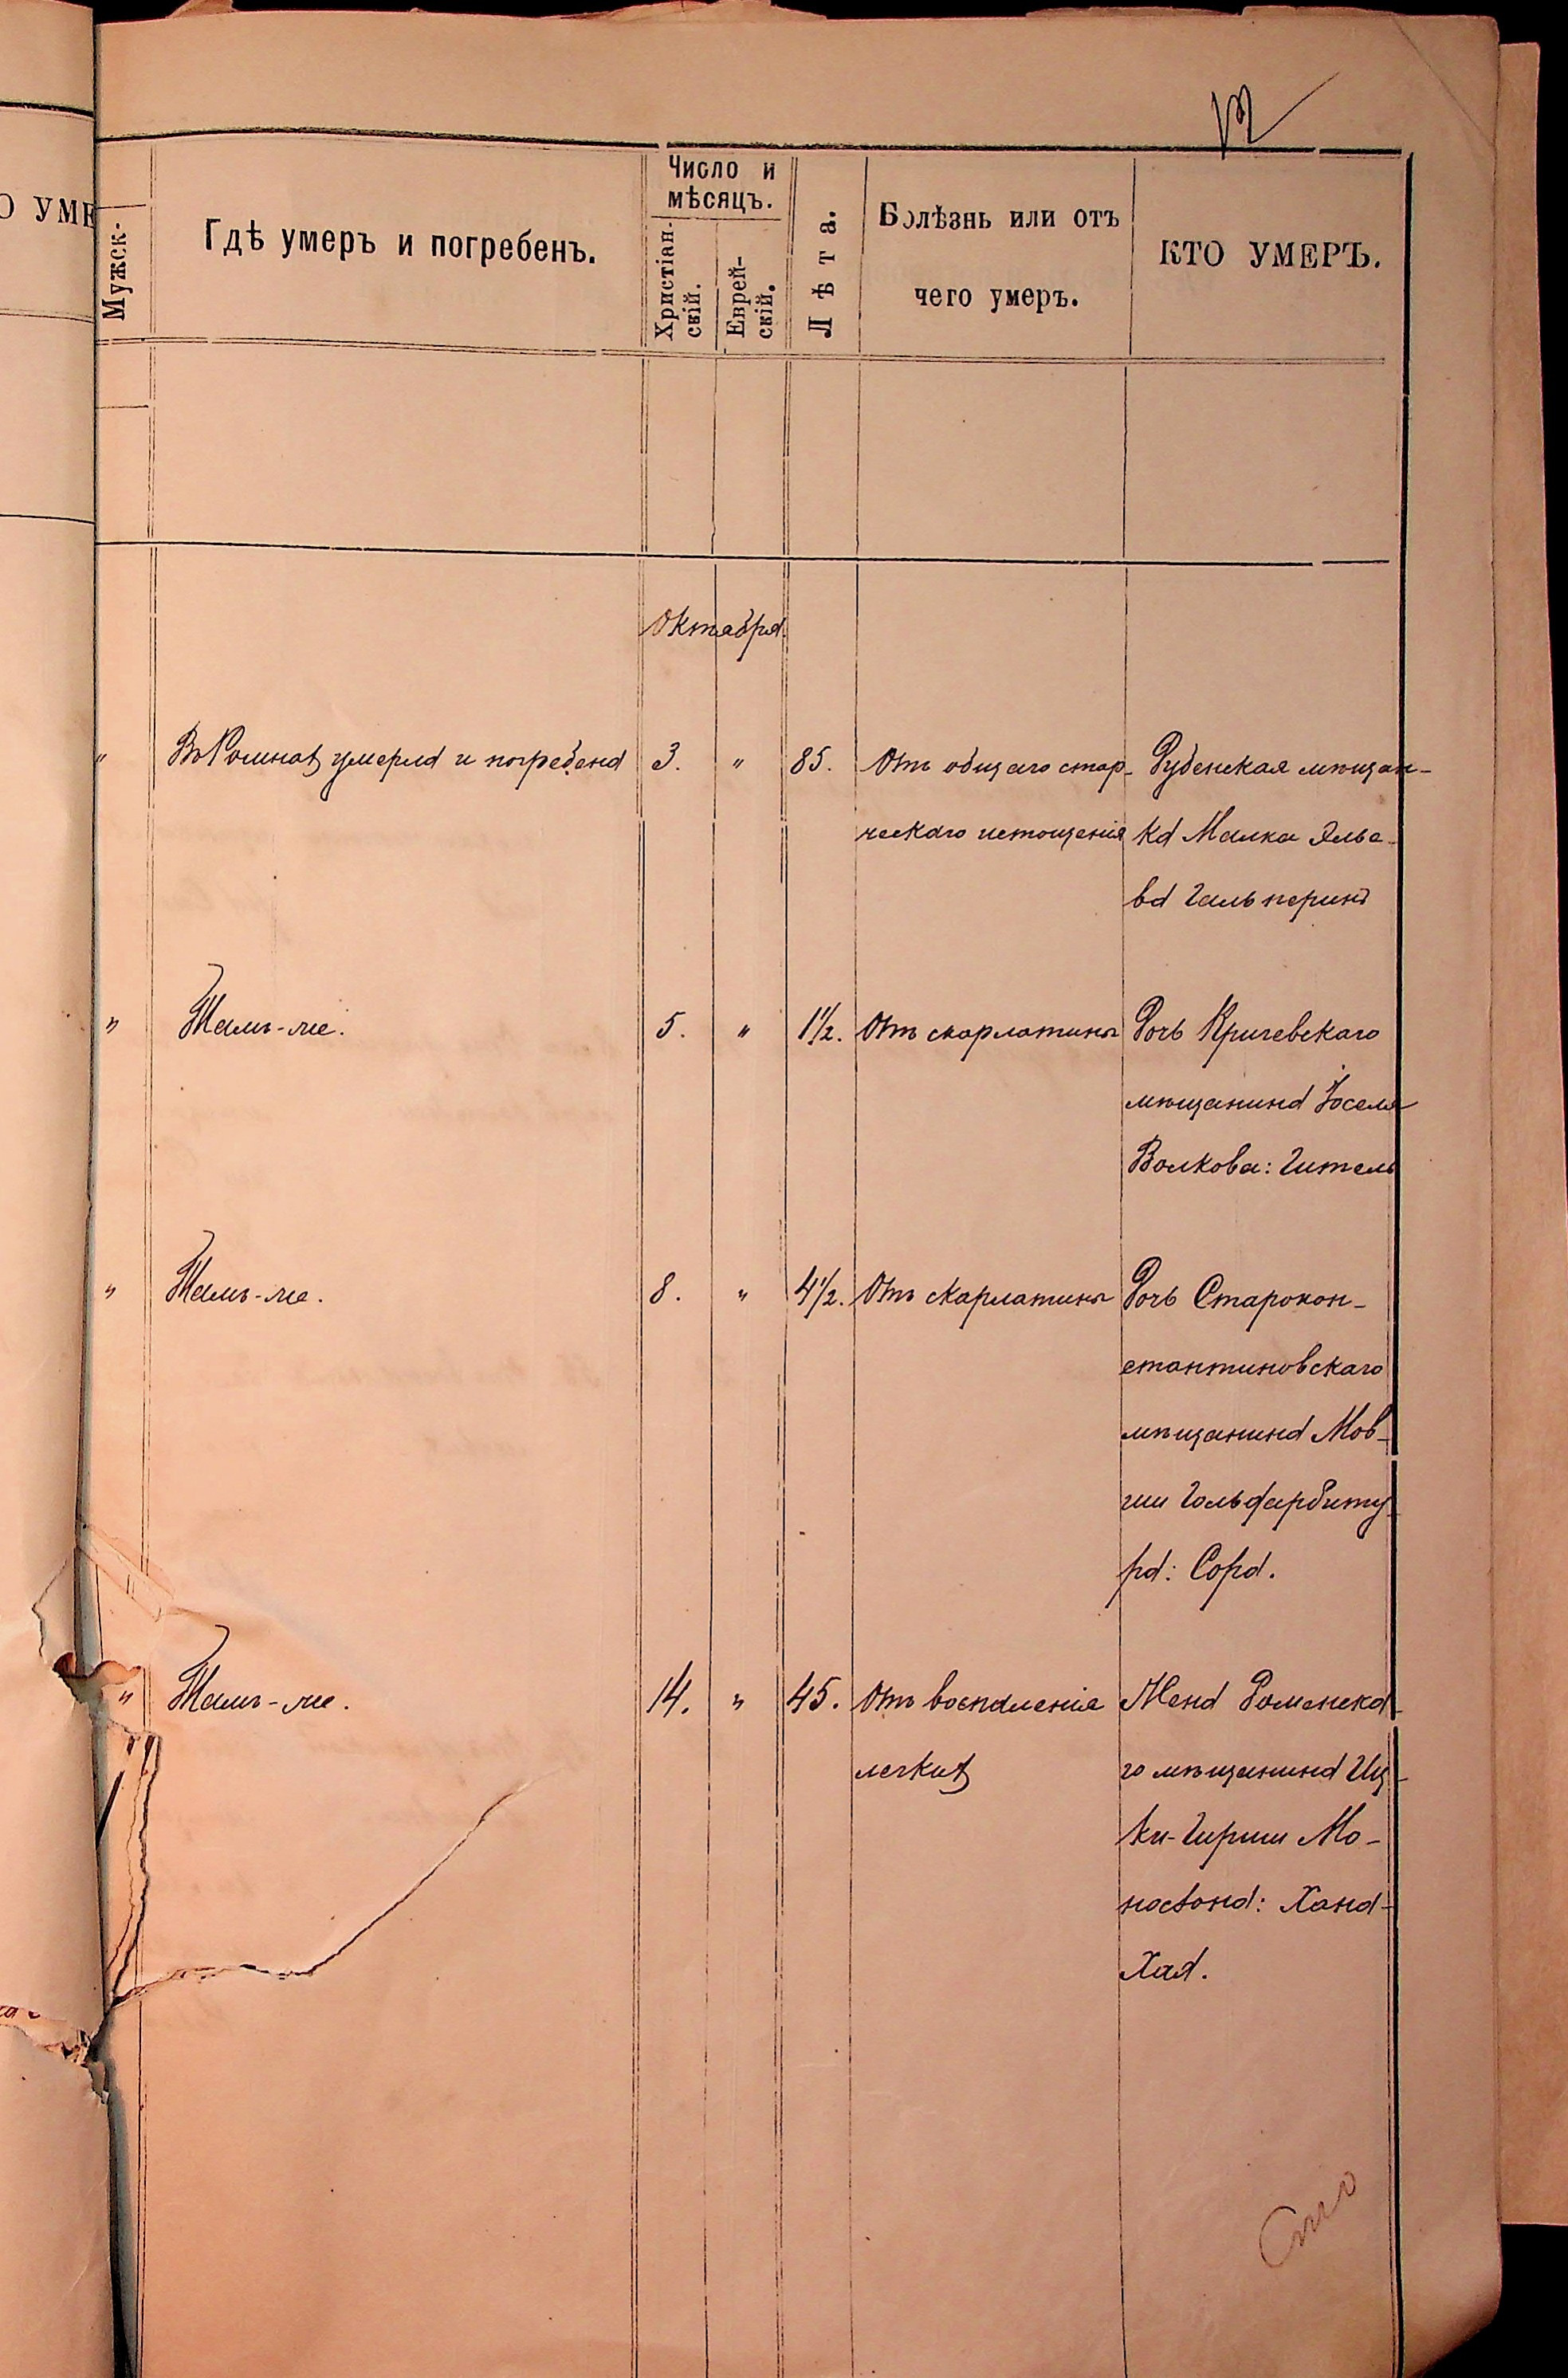 О УМЕ
Мужск-
Гдѣ умеръ и погребенъ.
Число и
мѣсяцъ.
Христіан-
скій.
Еврей-
скій.
Лѣта.
Болѣзнь или отъ
чего умеръ.
КТО УМЕРЪ.
Октября.
" Въ Ромнахъ умерла и погребена 3. " 85. Отъ общаго стар- Дубенская мѣщан-
ческаго истощенія ка Малка Эльe-
ва Гальперина
" Тамъ-же. 5. " 1½. Отъ скарлатины Дочь Кричевскаго
мѣщанина Іоселя
Волкова: Гитель
" Тамъ-же. 8. " 4½. Отъ скарлатины Дочь Старокон-
стантиновскаго
мѣщанина Мов-
ши Гольдарбиту-
ра: Сора.
" Тамъ-же. 14. " 45. Отъ воспаленія Жена Роменска-
легкихъ го мѣщанина Иц-
ки-Гирши Мо-
настона: Хана-
Хая.